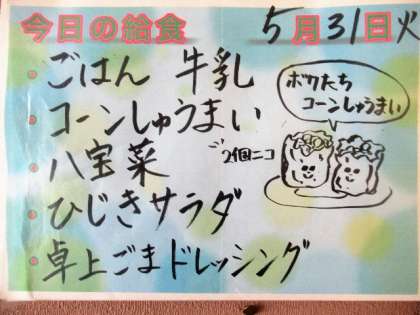 今日の給食 5月31日火
ごはん 牛乳
コーンしゅうまい
八宝菜
ひじきサラダ
卓上ごまドレッシング
ボクたち
コーンしゅうまい
2個